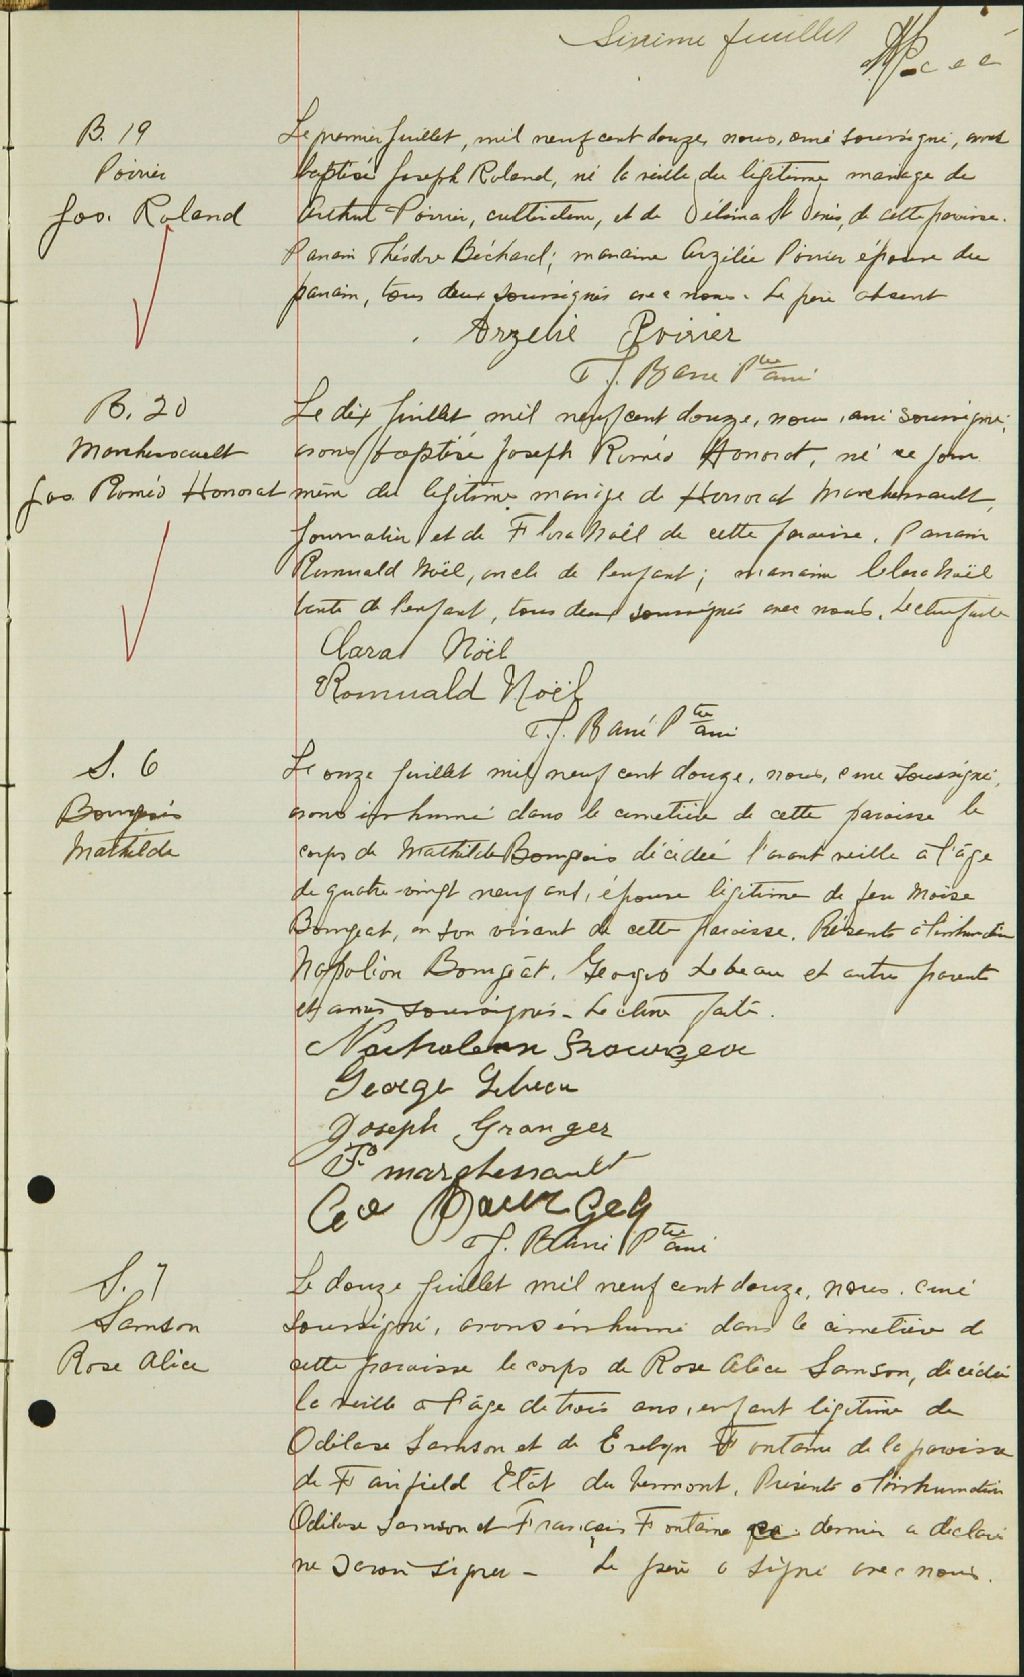 Sixième feuillet
B. 19
Poirier
Jos. Roland
Le premier juillet, mil neuf cent douze, nous, curé soussigné, avons
baptisé Joseph Roland, né la veille du légitime mariage de
Arthur Poirier, cultivateur, et de Délima St Denis, de cette paroisse.
Parrain Théodore Béchard; marraine Arzélie Poirier épouse du
parrain, tous deux soussignés avec nous. Le père absent
Arzelie Poirier
T. J. Barré Ptre curé
B. 20
Marchessault
Jos. Roméo Honorat
Le dix juillet mil neuf cent douze, nous, curé soussigné,
avons baptisé Joseph Roméo Honorat, né ce jour
même du légitime mariage de Honorat Marchessault,
journalier et de Flora Noël de cette paroisse. Parrain
Romuald Noël, oncle de l'enfant; marraine Clara Noël
tante de l'enfant, tous deux soussignés avec nous. Lecture faite
Clara Noël
Romuald Noël
T. J. Barré Ptre curé
S. 6
Bourgeois
Mathilde
Le onze juillet mil neuf cent douze, nous, curé soussigné,
avons inhumé dans le cimetière de cette paroisse le
corps de Mathilde Bourgeois décédée l'avant veille à l'âge
de quatre-vingt neuf ans, épouse légitime de feu Moïse
Bourgeat, en son vivant de cette paroisse. Présents à l'inhumation
Napoléon Bourgeat, Georges Lebeau et autres parents
et amis soussignés - Lecture faite.
George Lebeau
Joseph Granger
Fo marchessault
T. J. Barré Ptre curé
S. 7
Samson
Rose Alice
Le douze juillet mil neuf cent douze, nous, curé
soussigné, avons inhumé dans le cimetière de
cette paroisse le corps de Rose Alice Samson, décédée
la veille à l'âge de trois ans, enfant légitime de
Odilase Samson et de Evelyn Fontaine de la paroisse
de Fairfield Etat du Vermont. Présents à l'inhumation
Odilase Samson et François Fontaine ce dernier a déclaré
ne savoir signer - Le père a signé avec nous.